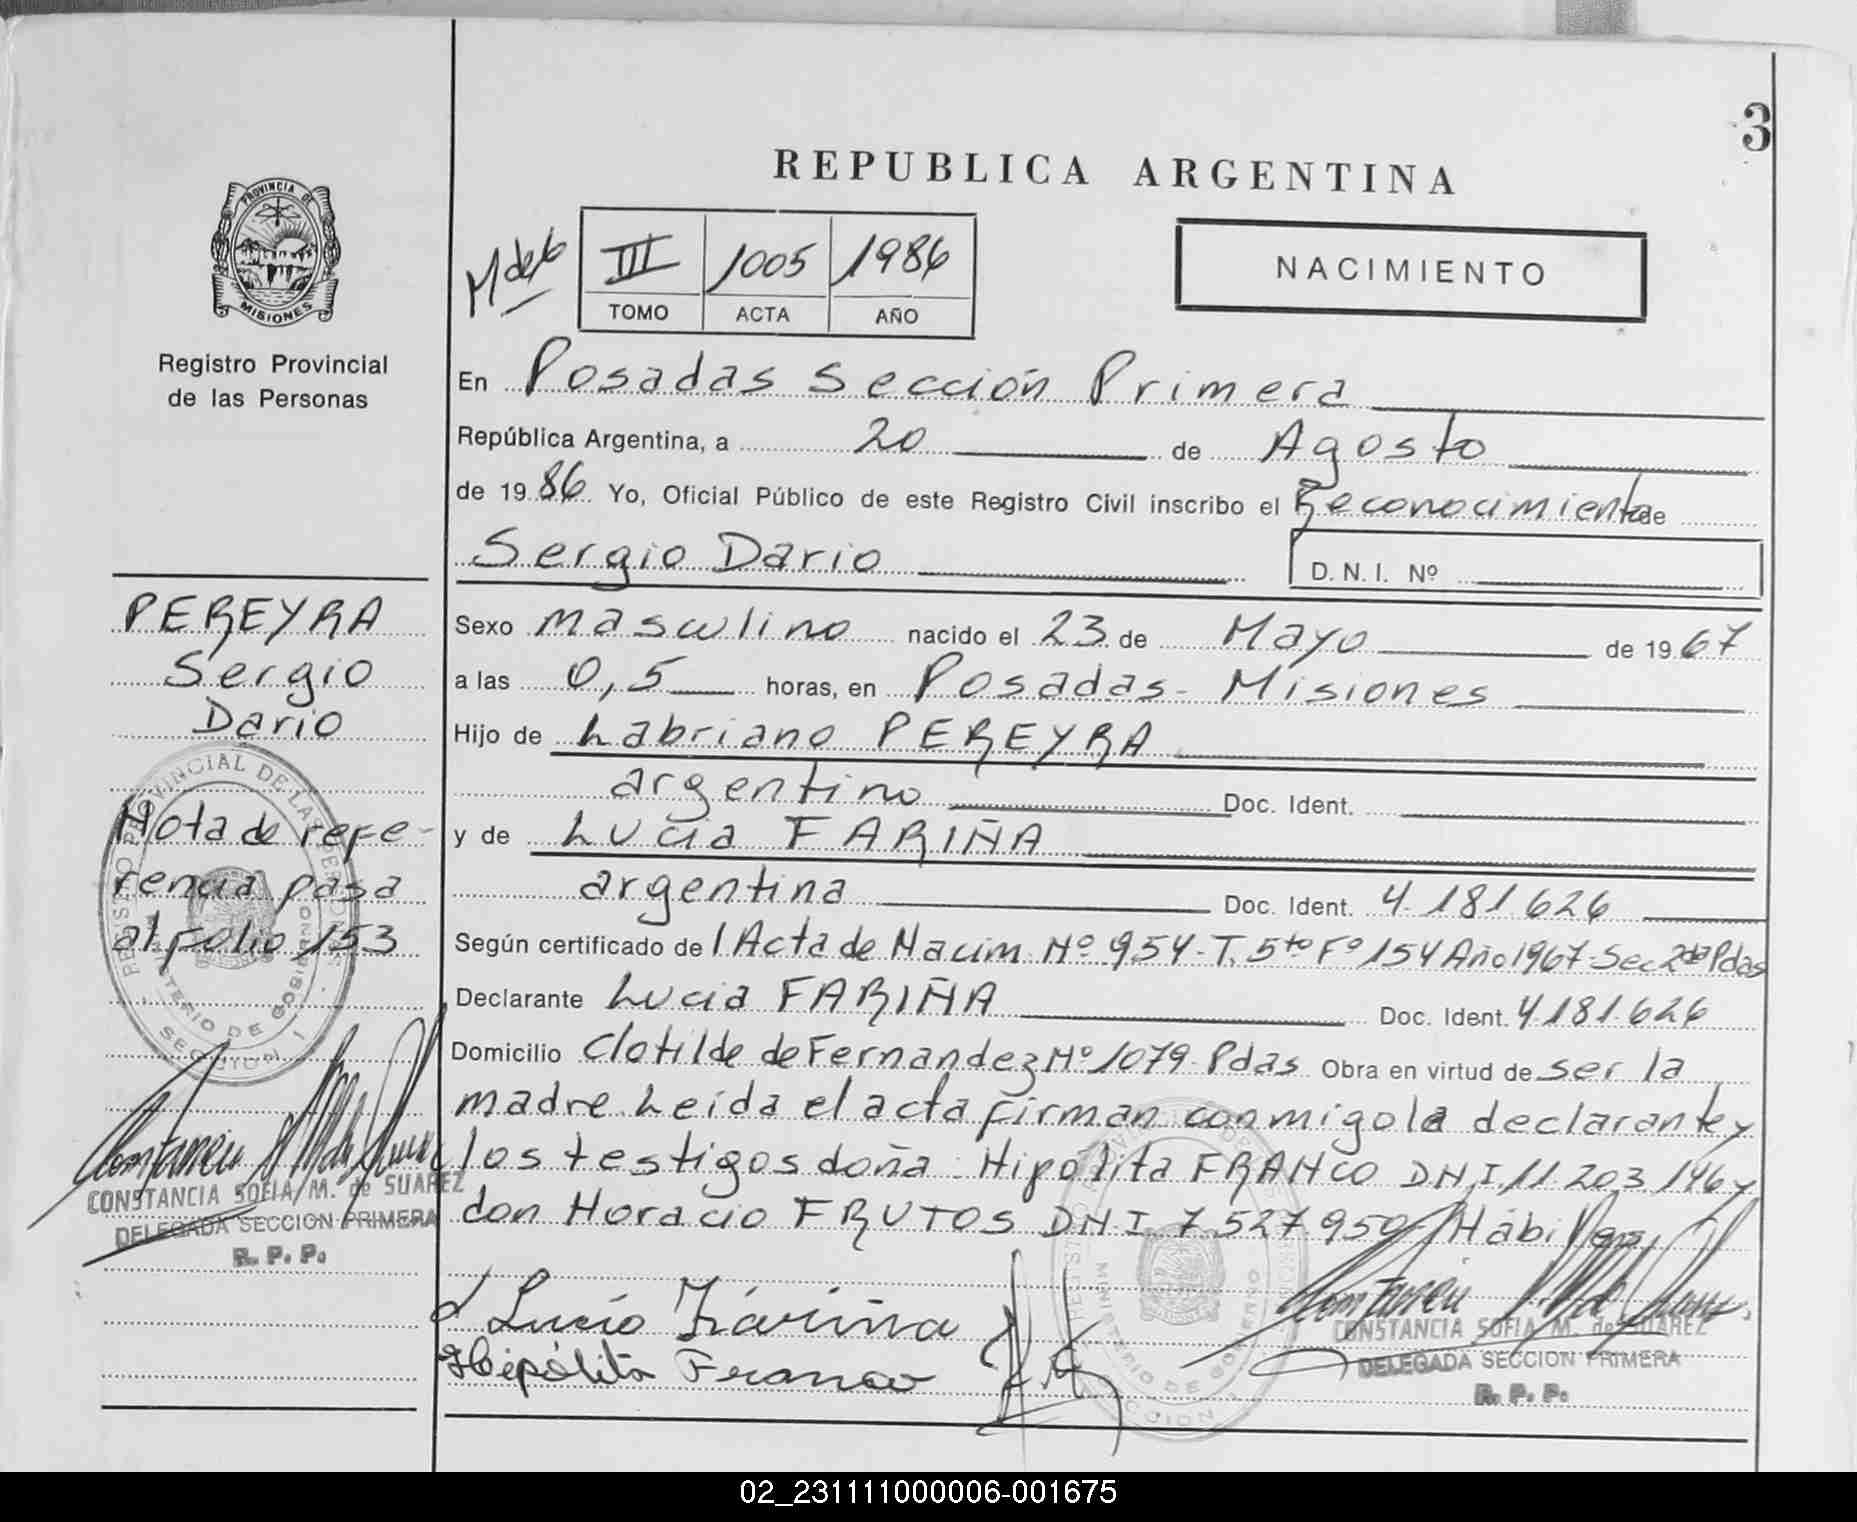 3
REPUBLICA ARGENTINA
PROVINCIA DE
MISIONES
Registro Provincial
de las Personas
III 1005 1986
TOMO ACTA AÑO
NACIMIENTO
En Posadas Sección Primera
República Argentina, a 20 de Agosto
de 1986 Yo, Oficial Público de este Registro Civil inscribo el Reconocimiento de
Sergio Dario D. N. I. Nº
PEREYRA
Sergio
Dario
Nota de refe-
rencia pasa
al folio 153
CONSTANCIA SOFIA M. de SUAREZ
DELEGADA SECCION PRIMERA
R. P. P.
Sexo masculino nacido el 23 de Mayo de 1967
a las 0,5 horas, en Posadas - Misiones
Hijo de Labriano PEREYRA
argentino Doc. Ident.
y de Lucia FARIÑA
argentina Doc. Ident. 4.181.626
Según certificado de 1 Acta de Nacim. Nº 954 - T. 5to Fº 154 Año 1967 - Sec 2da Pdas
Declarante Lucia FARIÑA Doc. Ident. 4.181.626
Domicilio Clotilde de Fernandez Nº 1079 - Pdas Obra en virtud de ser la
madre. Leída el acta firman conmigo la declarante y
los testigos doña: Hipólita FRANCO DNI 11.203.146 y
don Horacio FRUTOS DNI 7.527.950 - Hábiles
Lucia Fariña
Hipólita Franco
CONSTANCIA SOFIA M. de SUAREZ
DELEGADA SECCION PRIMERA
R. P. P.
02_231111000006-001675